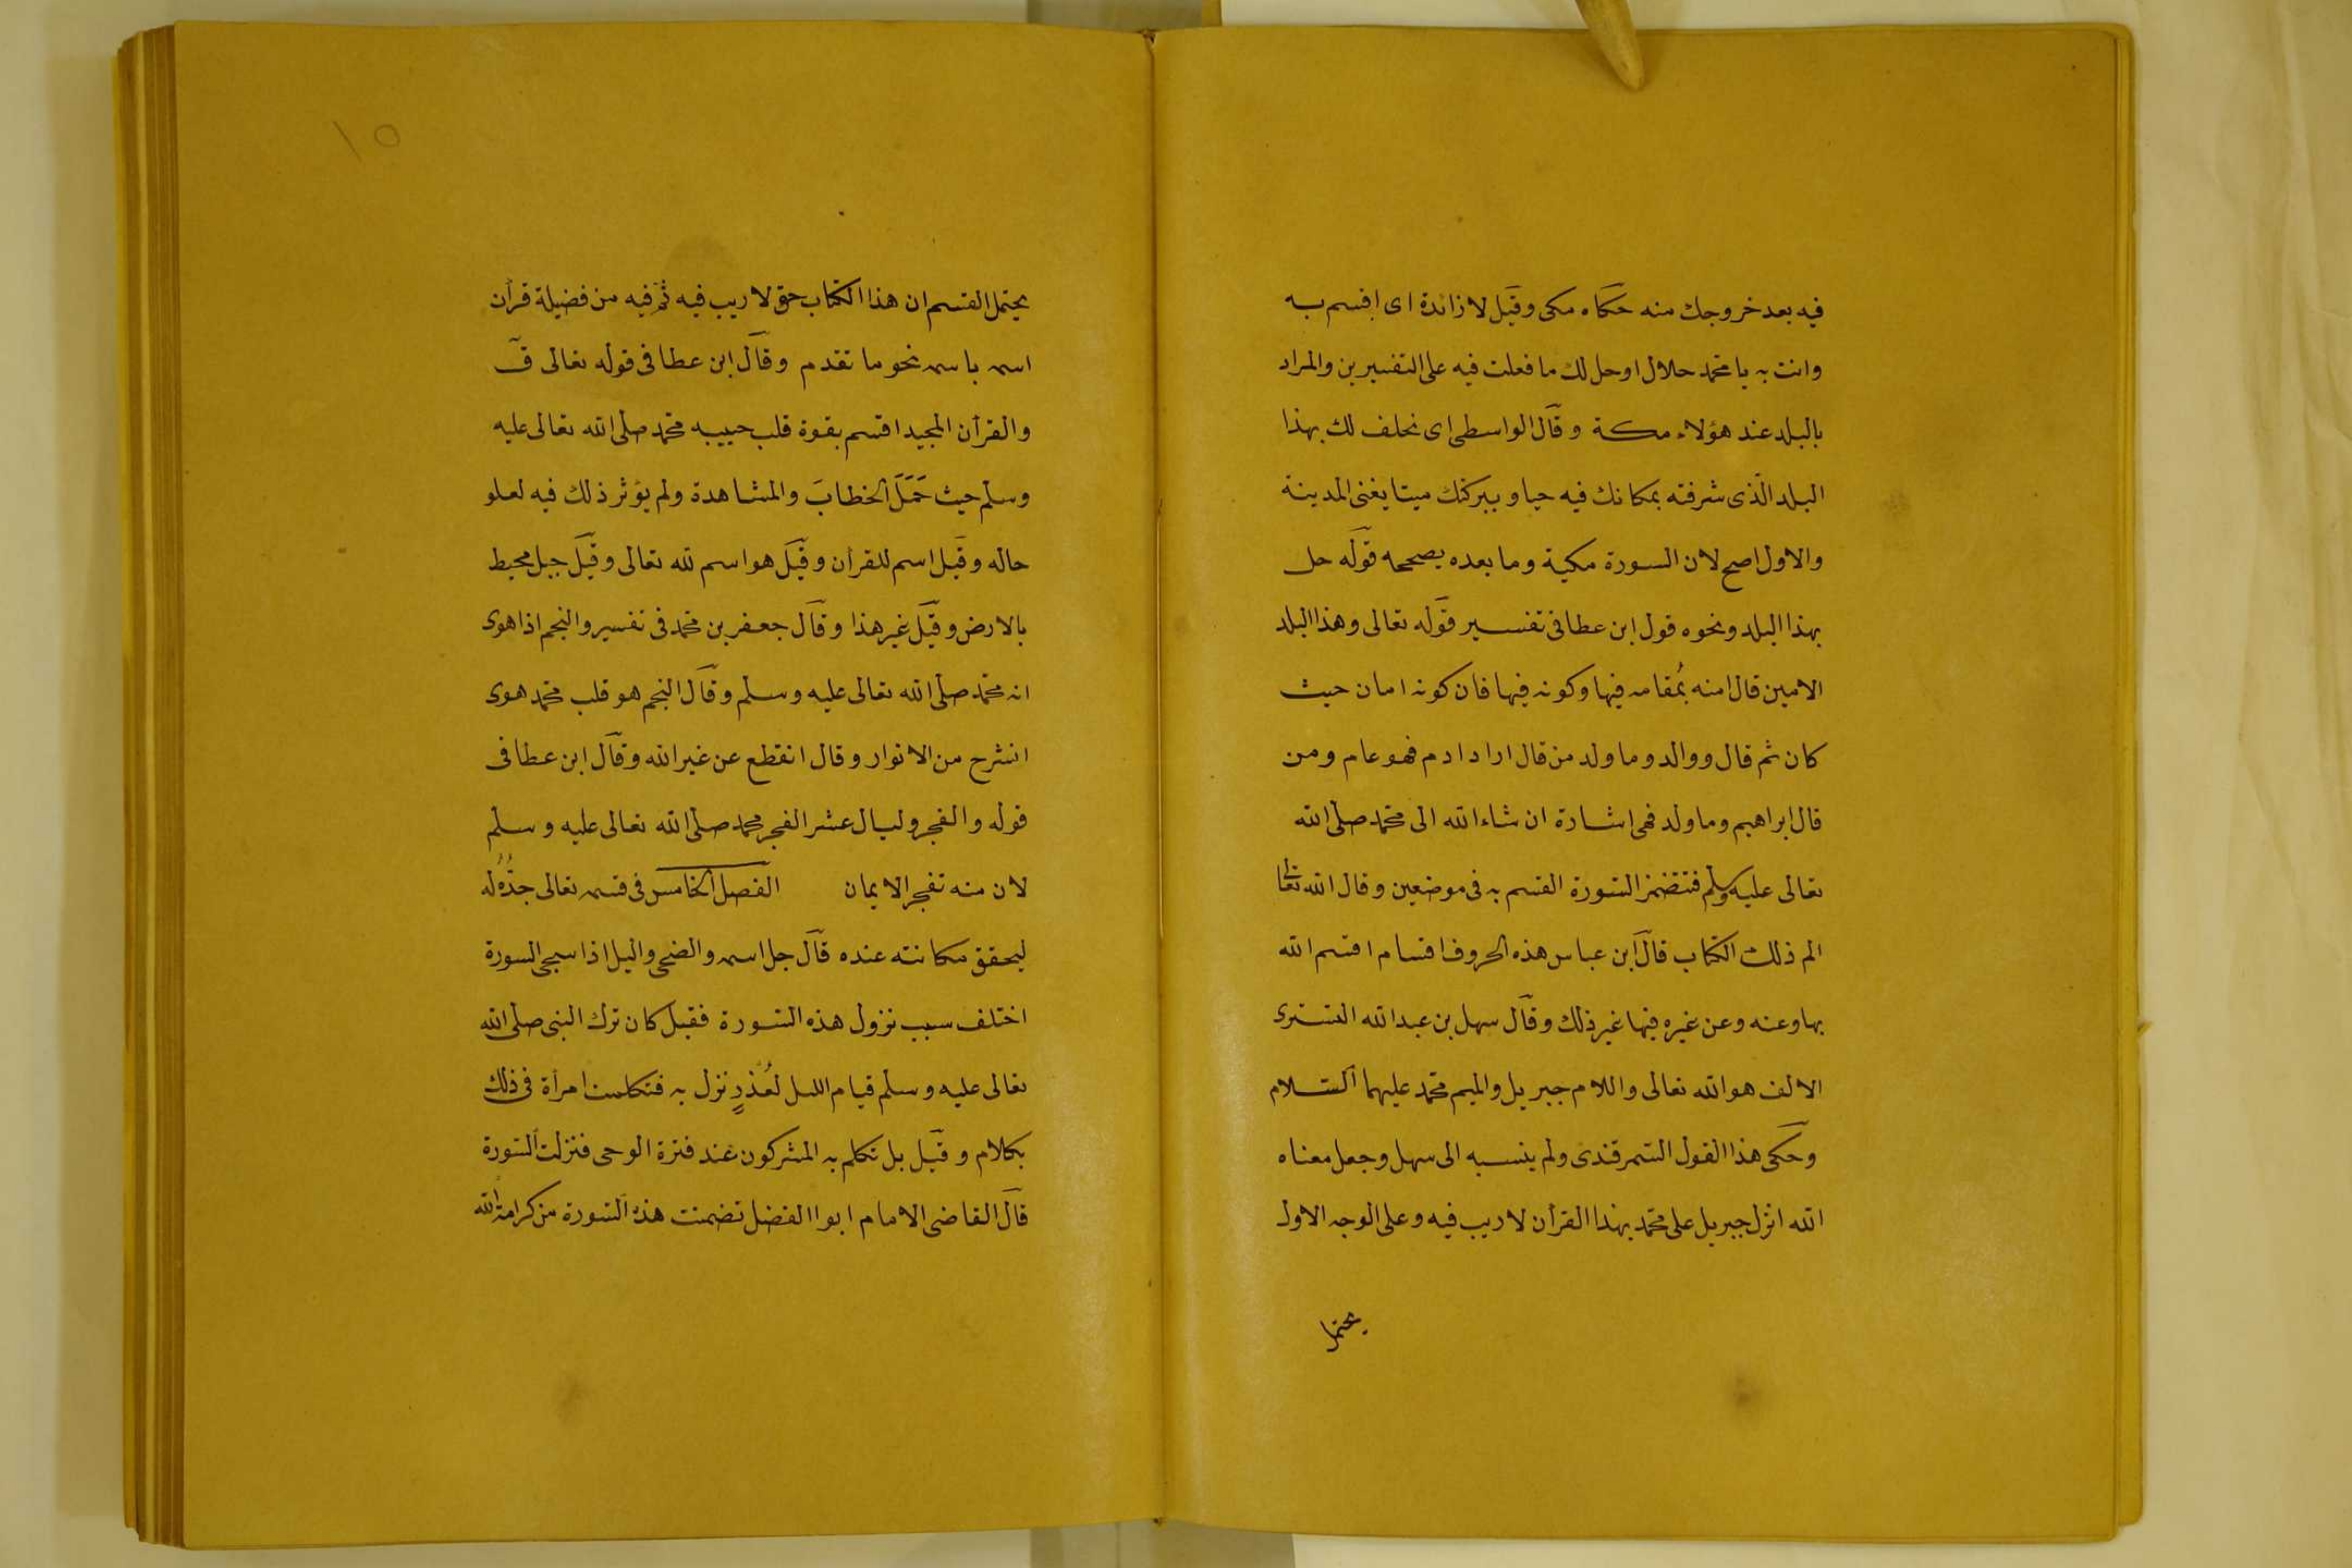 فيه بعد خروجك منه حكاه مكى وقيل لا زائدة اى اقسم به
وانت به يا محمد حلال او حل لك ما فعلت فيه على التفسيرين والمراد
بالبلد عند هؤلاء مكة وقال الواسطى اى نحلف لك بهذا
البلد الذى شرفته بمكانك فيه حيا وببركتك ميتا يغنى المدينة
والاول اصح لان السورة مكية وما بعده يصححه قوله حل
بهذا البلد ونحوه قول ابن عطا فى تفسير قوله تعالى وهذا البلد
الامين قال امنه بمُقامه فيها وكونه فيها فان كونه امان حيث
كان ثم قال ووالد وما ولد من قال اراد ادم فهو عام ومن
قال ابراهيم وما ولد فهى اشارة ان شاء الله الى محمد صلى الله
تعالى عليه وسلم فتتضمن السورة القسم به فى موضعين وقال الله تعالى
الم ذلك الكتاب قال ابن عباس هذه الحروف اقسام اقسم الله
بها وعنه وعن غيره فيها غير ذلك وقال سهل بن عبد الله التسترى
الالف هو الله تعالى واللام جبريل والميم محمد عليهما السلام
وحكى هذا القول السمرقندى ولم ينسبه الى سهل وجعل معناه
الله انزل جبريل على محمد بهذا القرأن لا ريب فيه وعلى الوجه الاول
يحتمل
١٥
يحتمل القسم ان هذا الكتاب حق لا ريب فيه ثم فيه من فضيلة قرأن
اسمه باسمه نحو ما تقدم وقال ابن عطا فى قوله تعالى ق
والقرأن المجيد اقسم بقوة قلب حبيبه محمد صلى الله تعالى عليه
وسلم حيث حَمَلَ الخطابَ والمشاهدة ولم يؤثر ذلك فيه لعلو
حاله وقيل اسم للقرأن وقيل هو اسم لله تعالى وقيل جبل محيط
بالارض وقيل غير هذا وقال جعفر بن محمد فى تفسير والنجم اذا هوى
انه محمد صلى الله تعالى عليه وسلم وقال النجم هو قلب محمد هوى
انشرح من الانوار وقال انقطع عن غير الله وقال ابن عطا فى
قوله والفجر وليال عشر الفجر محمد صلى الله تعالى عليه وسلم
لان منه تفجر الايمان الفصل الخامس فى قسمه تعالى جدُّهُ له
ليحقق مكانته عنده قال جل اسمه والضحى واليل اذا سجى السورة
اختلف سبب نزول هذه السورة فقيل كان ترك النبى صلى الله
تعالى عليه وسلم قيام الليل لعُذرٍ نزل به فتكلمت امرأة فى ذلك
بكلام وقيل بل تكلم به المشركون عند فترة الوحى فنزلت السورة
قال القاضى الامام ابوا الفضل تضمنت هذه السورة من كرامة الله